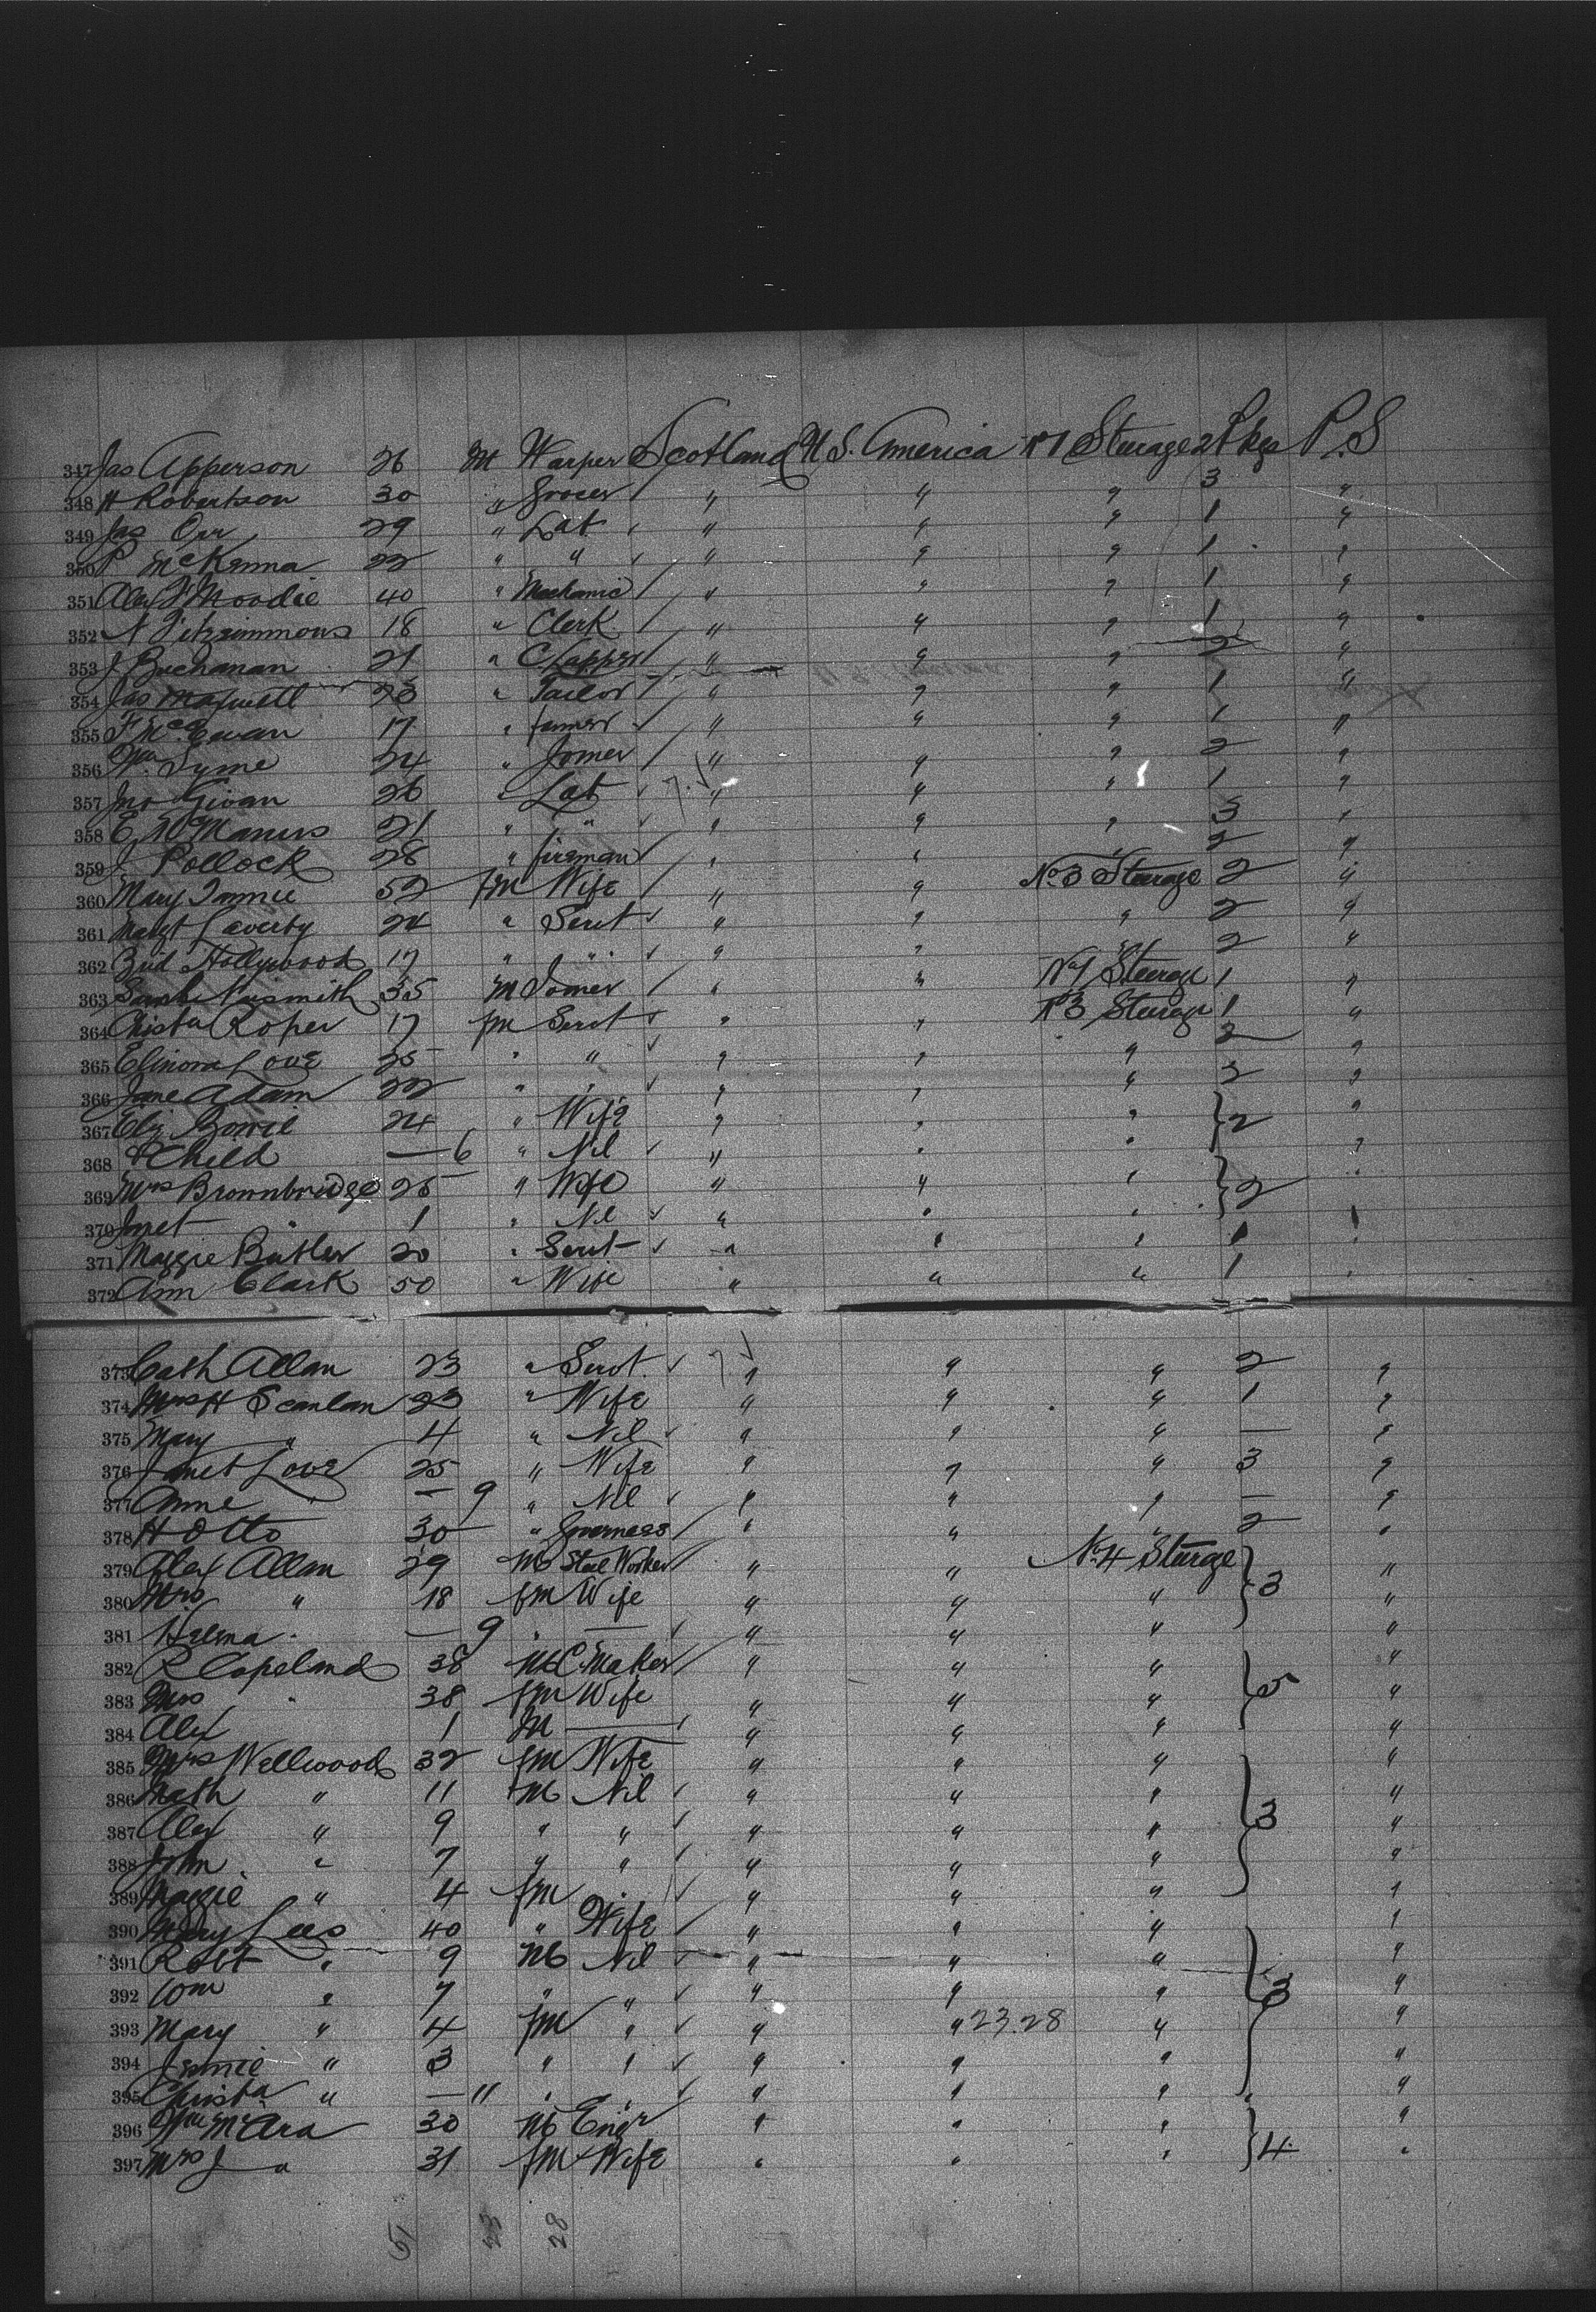 347 Jas Apperson 26 M Warper Scotland U.S. America No 1 Steerage 2 Pkgs P.S
348 H Robertson 30 " Grocer / " " " 3 "
349 Jas Orr 29 " Lab. " " " 1 "
350 P McKenna 22 " " " " " 1 "
351 Alex Moodie 40 " Mechanic / " " " 1 "
352 N Fitzsimmons 18 " Clerk / " " " 1 "
353 J Buchanan 21 " / " " " 2 "
354 Jas Maxwell 23 " Tailor / " " " 1 "
355 F McEwan 17 " farmer " " " 1 "
356 Wm Syme 24 " Joiner / " " " 2 "
357 Jno Givan 26 " Lab " " " 1 "
358 E McManus 21 " " " " " 3 "
359 J Pollock 28 " fireman " " " 2 "
360 Mary Immie 52 fm Wife / " " No. 3 Steerage 2 "
361 Margt Laverty 24 " Servt " " " 2 "
362 Brid Hollywood 17 " " " " " 2 "
363 Naismith 35 M Joiner / " " No 1 Steerage 1 "
364 Christa Roper 17 fm Servt " " No 3 Steerage 1 "
365 Elinora Love 25 " " " " " 2 "
366 Jane Adam 22 " " " " " 2 "
367 Eliz Bowie 24 " Wife " " " } 2 "
368 & Child — 6 " Nil " " " "
369 Mrs Brownbridge 26 " Wife " " " } 2 "
370 Janet " 1 " Nil " " " "
371 Maggie Butler 20 " Servt " " " 1 "
372 Ann Clark 50 " Wife " " " 1 "
373 Cath Allan 23 " Servt. " " " 2 "
374 Mrs H Scanlan 23 " Wife " " " 1 "
375 Mary " 4 " Nil " " " — "
376 Janet Love 25 " Wife " " " 3 "
377 Anne " — 9 " Nil " " " — "
378 H Otto 30 " Governess / " " " 2 "
379 Alex Allan 29 M Steel Worker / " " No. 4 Sterge } 3 "
380 Mrs " 18 fm Wife " " " "
381 Helma " — 9 " — " " " "
382 R Copeland 38 M C. Maker / " " " } 5 "
383 Mrs " 38 fm Wife " " " "
384 Alex 1 M — " " " "
385 Mrs Wellwood 32 fm Wife " " " } 3 "
386 Math " 11 M Nil " " " "
387 Alex " 9 " " " " " "
388 John " 7 " " " " " "
389 Maggie " 4 fm " " " " "
390 Mary Lees 40 " Wife " " " } 3 "
391 Robt " 9 M Nil " " " "
392 Wm " 7 " " " " " "
393 Mary " 4 fm " " " 23.28 " "
394 Jamie " 3 " " " " " "
395 Christa " — 11 " " " " " "
396 Wm McAra 30 M Engr " " " } 4 "
397 Mrs J " 31 fm Wife " " " "
51 23 28